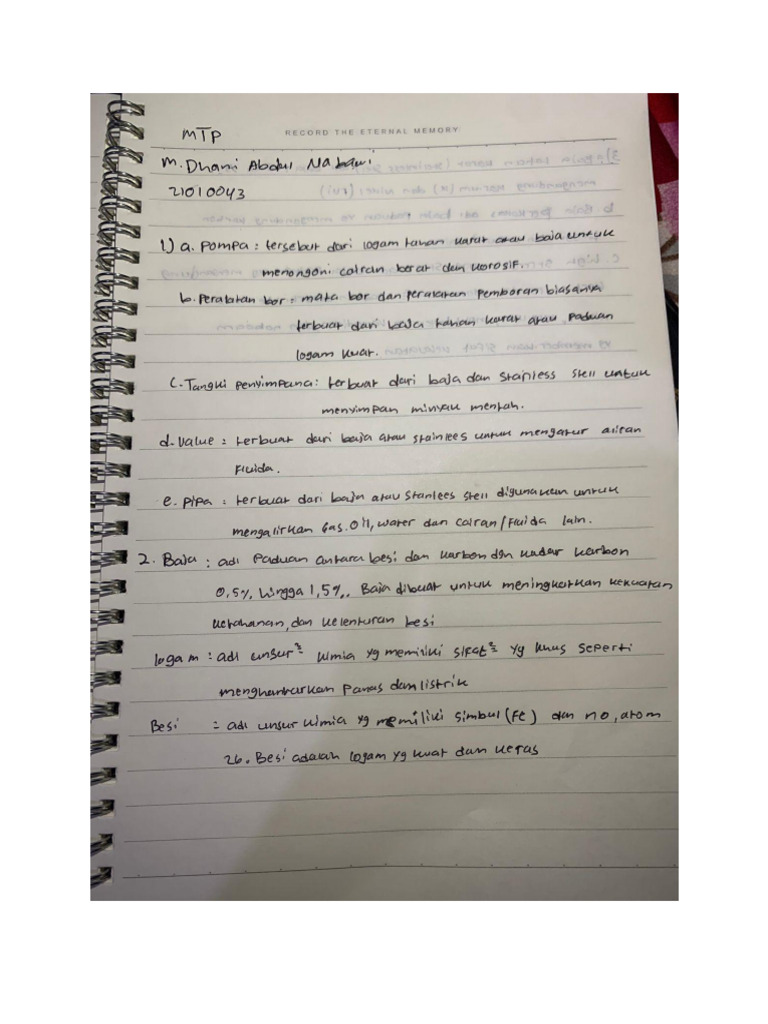 MTP
RECORD THE ETERNAL MEMORY
M. Dhani Abdul Nabawi
21010043
1) a. Pompa : tersebut dari logam tahan karat atau baja untuk
menongoni cairan berat dan korosif.
b. Peralatan bor : mata bor dan peralatan pemboran biasanya
terbuat dari baja tahan karat atau paduan
logam kuat.
c. Tangki penyimpana : terbuat dari baja dan stanless stell untuk
menyimpan minyak mentah.
d. Value : terbuat dari baja atau stainlees untuk mengatur aliran
Fluida.
e. Pipa : terbuat dari baja atau stanlees stell digunakan untuk
mengalirkan Gas. Oil, water dan cairan/fluida lain.
2. Baja : adl Paduan antara besi dan karbon dgn kadar karbon
0,5% hingga 1,5%. Baja dibuat untuk meningkatkan kekuatan
ketahanan, dan kelenturan besi
logam : adl unsur² kimia yg memiliki sifat² yg khus seperti
menghantarkan panas dan listrik
Besi : adl unsur kimia yg memiliki simbul (Fe) dan no, atom
26. Besi adalah logam yg kuat dan keras